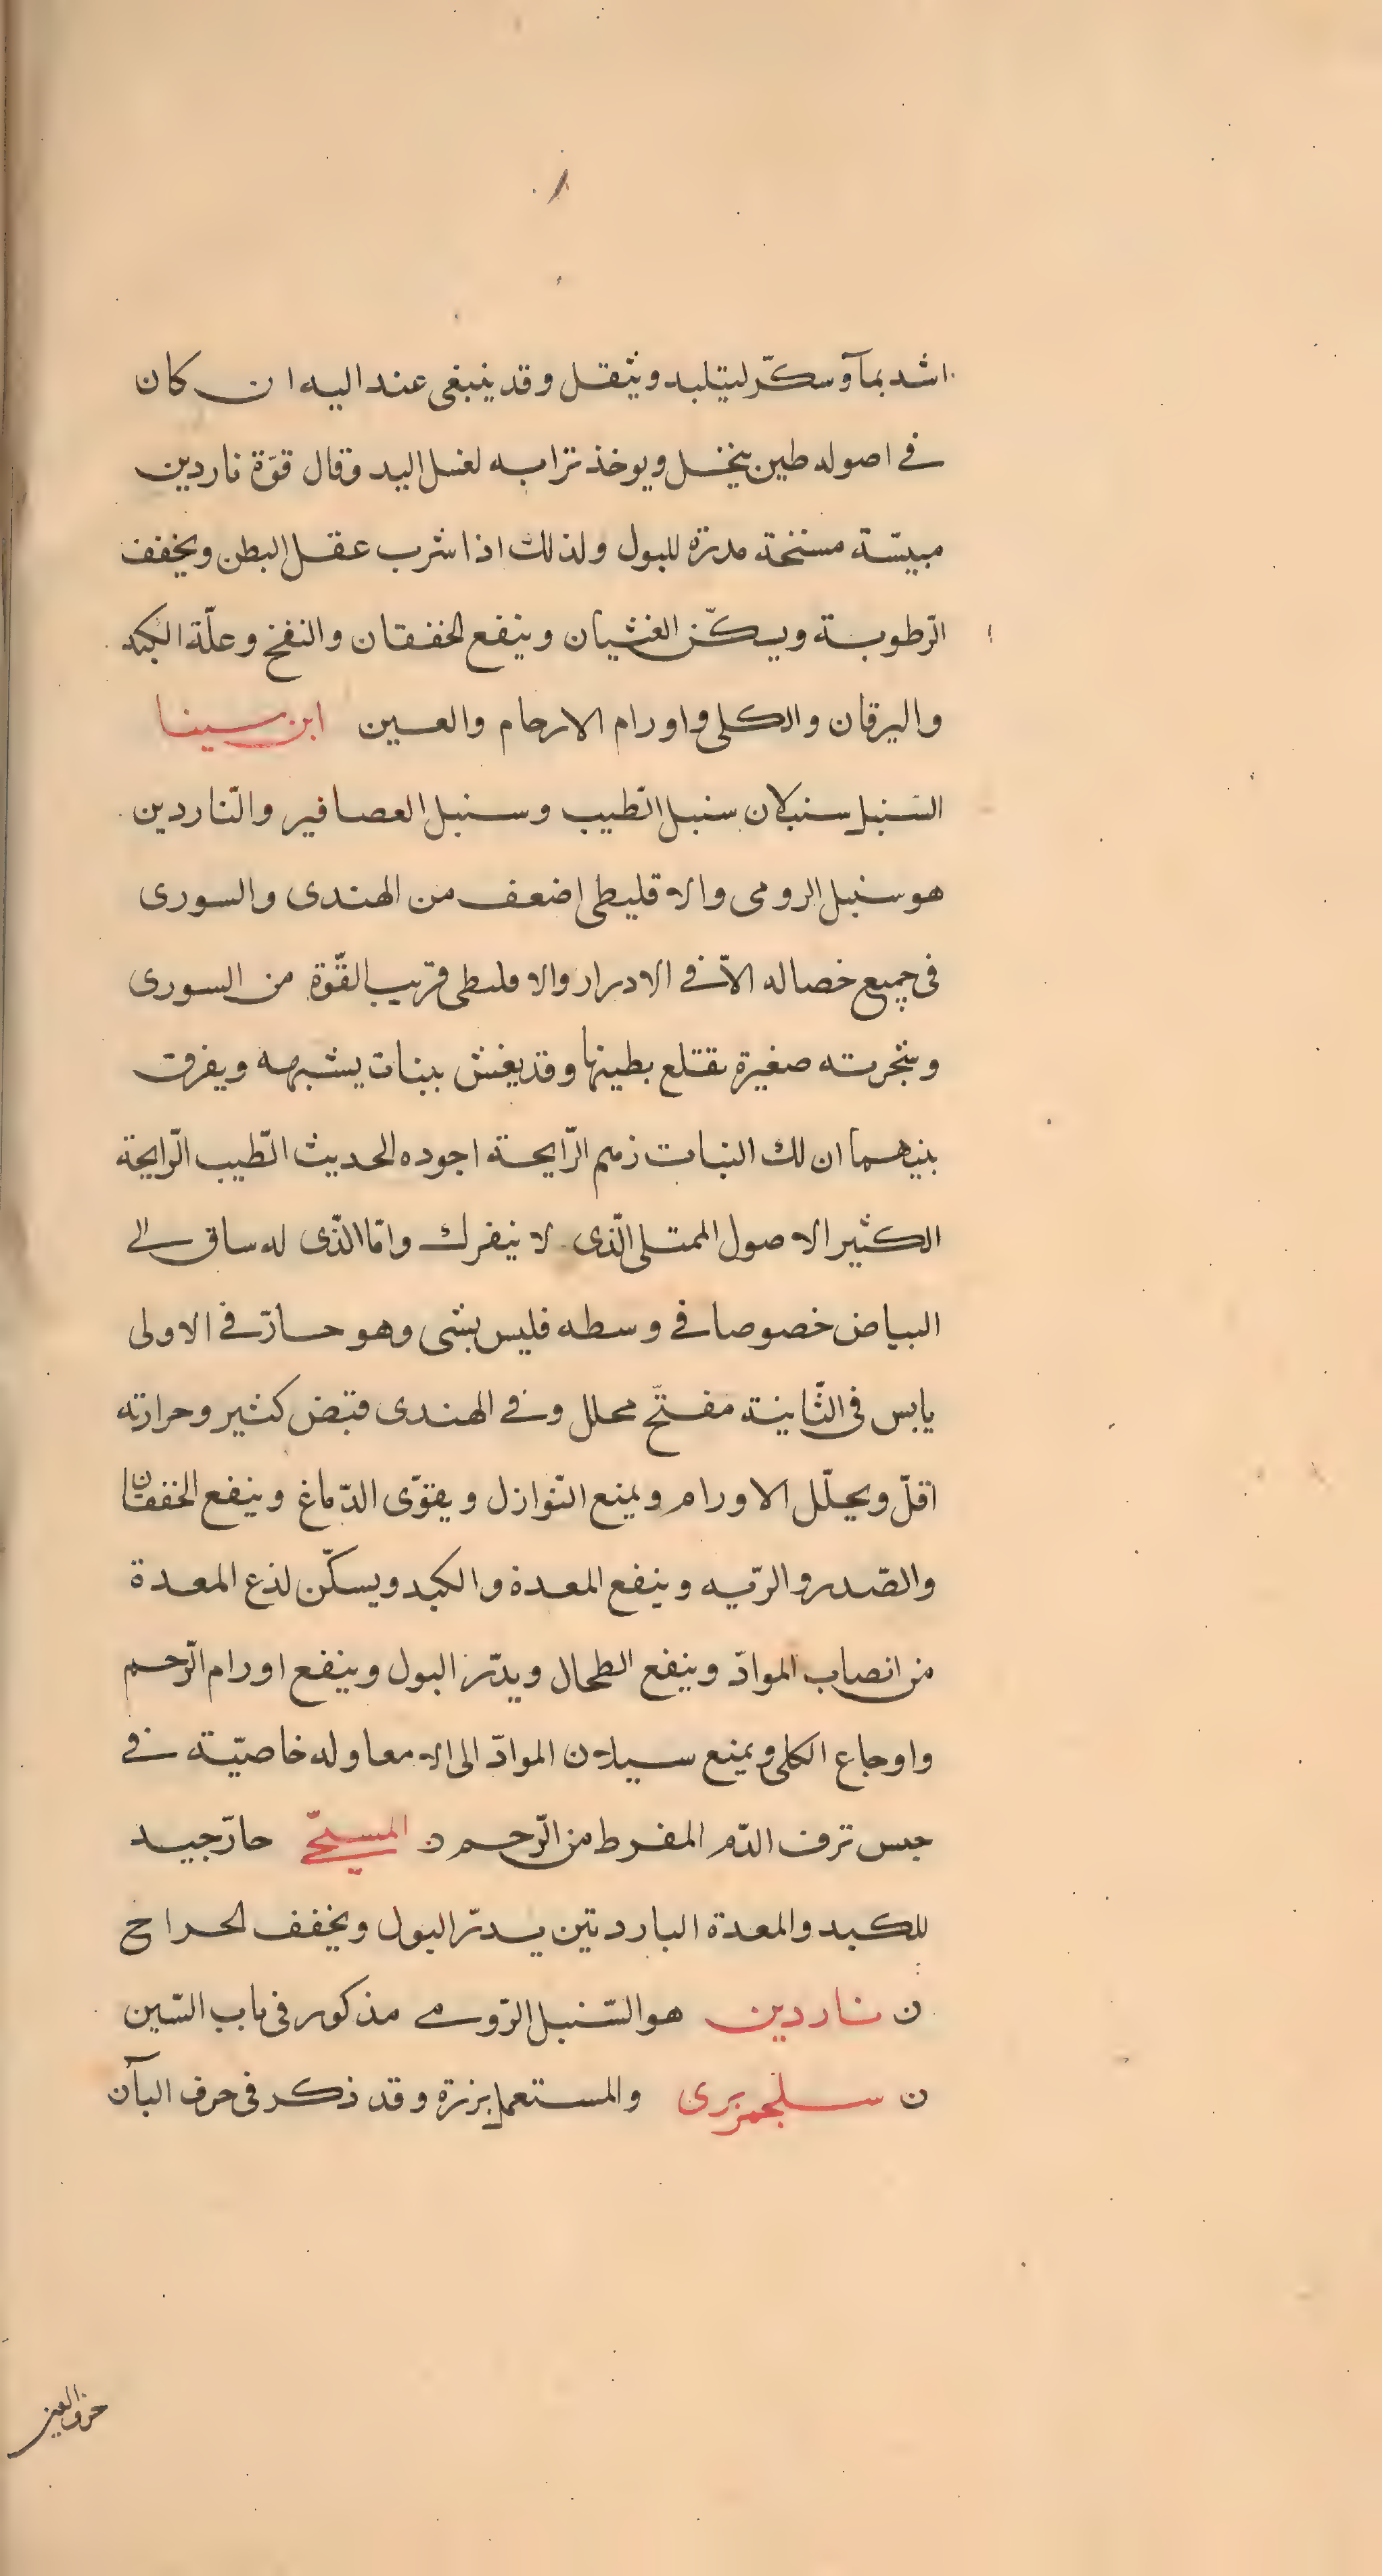 اشد بمآ وسكّر ليتلبد ويثقل وقد ينبغى عند اليه ان كان
فى اصوله طين ينخل ويوخذ ترابه لغسل اليد وقال قوّة ناردين
مبيسّة مسنخة مدرّة للبول ولذلك اذا شرب عقل البطن ويخفف
الرّطوبة ويسكّن الغشيان وينفع الخفقان والنفخ وعلّة الكبد
واليرقان والكلى واورام الارحام والعين ابن سينا
السّنبل سنبلان سنبل الطّيب وسنبل العصافير والنّاردين
هو سنبل الرومى والاقليطى اضعف من الهندى والسورى
فى جميع خصاله الّا فى الادرار والاقليطى قريب القّوة من السورى
وشجرته صغيرة تقتلع بطينها وقد يغش بنبات يشبهه ويفرق
بينهما ان لك النبات زمم الرّايحة اجوده الحديث الطّيب الرّايحة
الكثير الاصول الممتلى الّذى لا ينفرك وامّا الّذى له ساق الى
البياض خصوصا فى وسطه فليس بشى وهو حارّ فى الاولى
يابس فى الثّانية مفتّح محلل وفى الهندى قبض كثير وحرارته
اقلّ ويحلّل الاورام ويمنع النّوازل ويقوّى الدّماغ وينفع الخفقان
والصّدر والرّيه وينفع المعدة والكبد ويسكّن لذع المعدة
من انصاب الموادّ وينفع الطحال ويدرّ البول وينفع اورام الرّحم
واوجاع الكلى ويمنع سيلان الموادّ الى الامعا وله خاصيّة فى
حبس نزف الدّم المفرط من الرّحم ن المسيحّى حارّ جيد
للكبد والمعدة الباردتين يدرّ البول ويخفف الجراح
ن ناردين هو السّنبل الرّومى مذكور فى باب السّين
ن سلجم برّى والمستعمل بزرة وقد ذكر فى حرف البآن
حرف العين